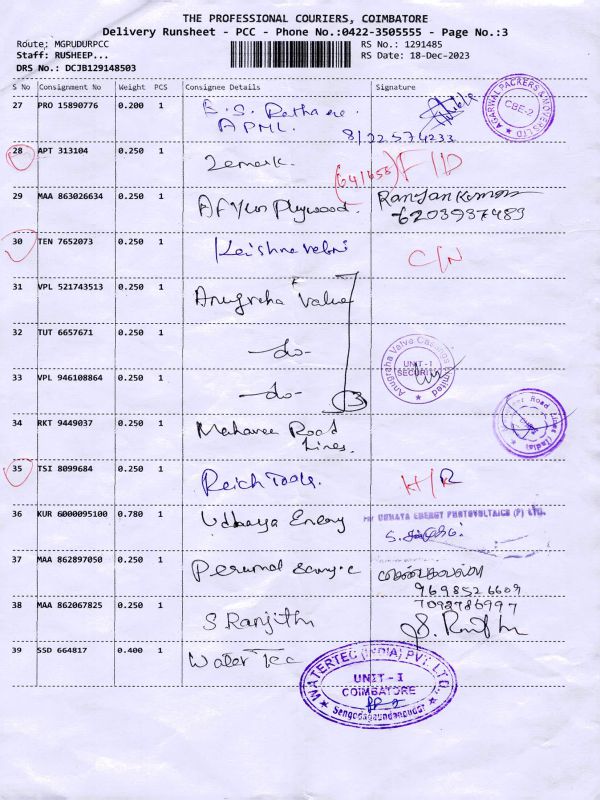 THE PROFESSIONAL COURIERS, COIMBATORE
Delivery Runsheet - PCC - Phone No.:0422-3505555 - Page No.:3
Route: MGPUDURPCC
Staff: RUSHEEP...
DRS No.: DCJB129148503
RS No.: 1291485
RS Date: 18-Dec-2023
S No Consignment No Weight PCS Consignee Details Signature
27 PRO 15890776 0.200 1
APML
AGARWAL PACKERS & MOVERS LTD
CBE-2
28 APT 313104 0.250 1 Zemark.
(641658) F/D
29 MAA 863026634 0.250 1 Plywood. Ranjan Kumar
6203937489
30 TEN 7652073 0.250 1 Krishnaveni C/N
31 VPL 521743513 0.250 1 Anugraha Valve
32 TUT 6657671 0.250 1 -do-
Anugraha Valve Castings Limited
UNIT-I
SECURITY
33 VPL 946108864 0.250 1 -do- 3
34 RKT 9449037 0.250 1 Road
Lines.
35 TSI 8099684 0.250 1 Reich Tools.
36 KUR 6000095100 0.780 1 Udhaya Energy
For UDHAYA ENERGY PHOTOVOLTAICS (P) LTD.
37 MAA 862897050 0.250 1 Perumal
9698526609
7092786997
38 MAA 862067825 0.250 1 S Ranjith
39 SSD 664817 0.400 1 Water Tec
WATERTEC (INDIA) PVT. LTD.
UNIT - I
COIMBATORE